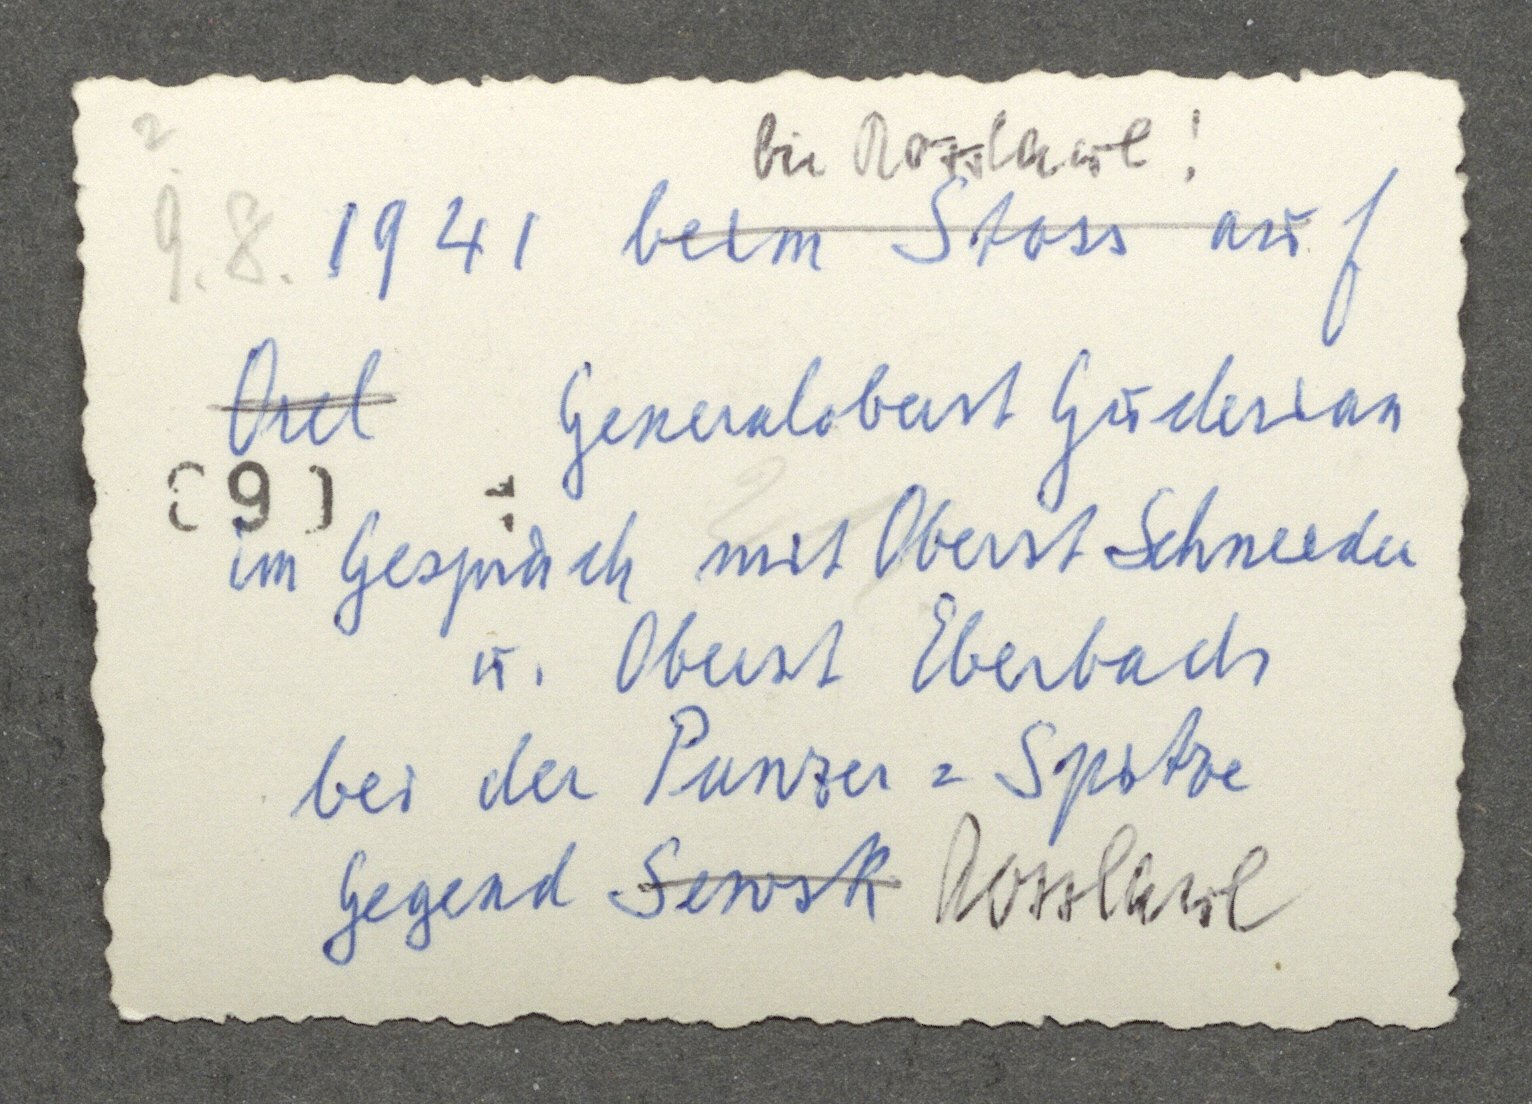 2
bei Rosslawl!
9.8. 1941 beim Stoss auf
Orel Generaloberst Guderian
(9)
im Gespräch mit Oberst Schneider
u. Oberst Eberbach
bei der Panzer=Spitze
Gegend Sewsk Rosslawl